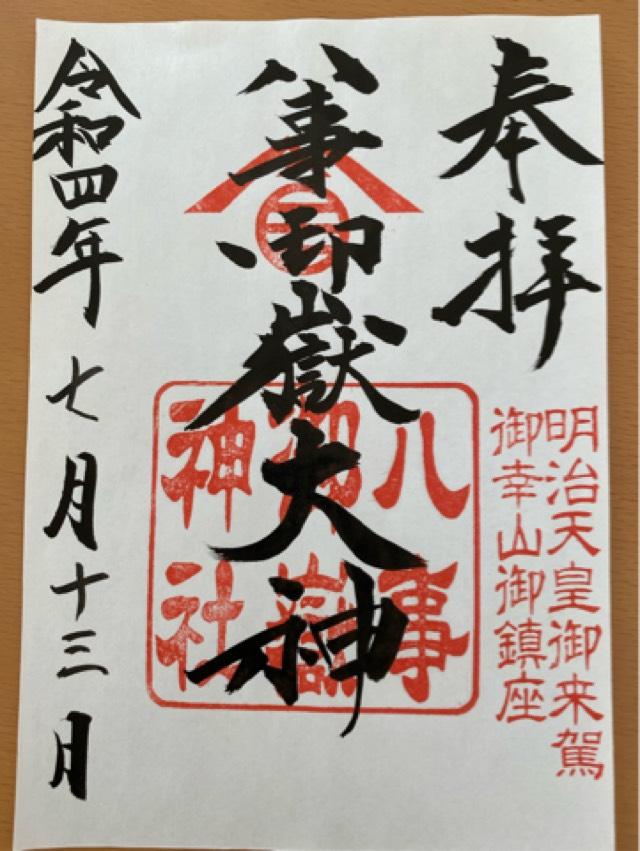 奉拝
明治天皇御来駕
御幸山御鎮座
八事御嶽大神
八事
御嶽
神社
令和四年七月十三日